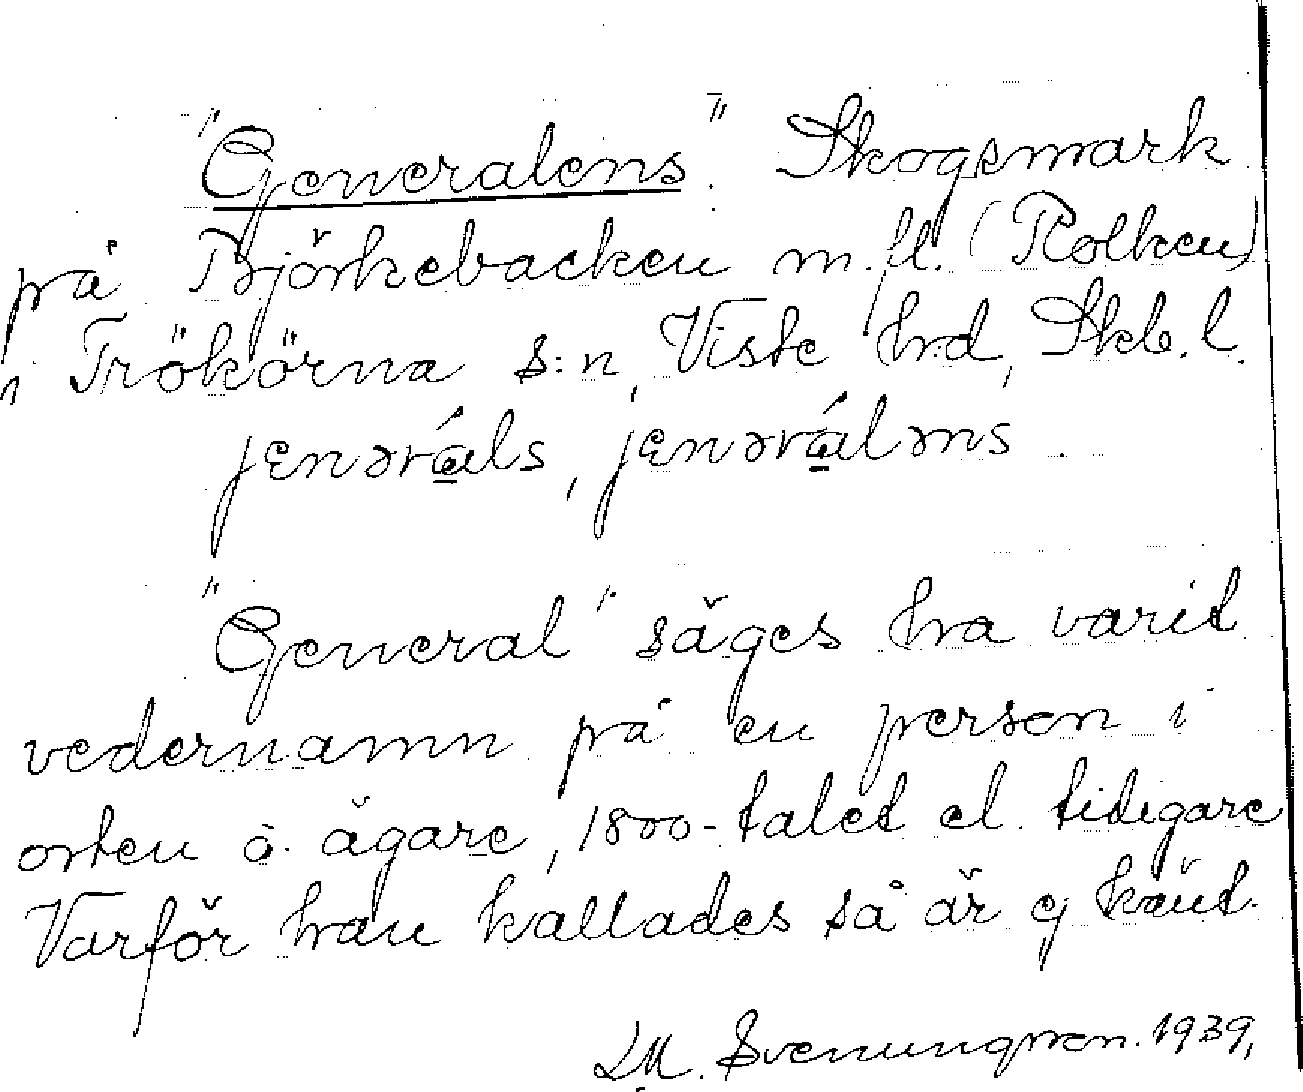 "Generalens". Skogsmark
på Björkebacken m.fl. (Rolken)
i Trökörna s:n, Viste hrd, Skb.l.
jenəráls, jenəráləns
"General" säges ha varit
vedernamn på en person i
orten o. ägare, 1800-talet el. tidigare
Varför han kallades så är ej känt.
LM. Svenungsson. 1939.